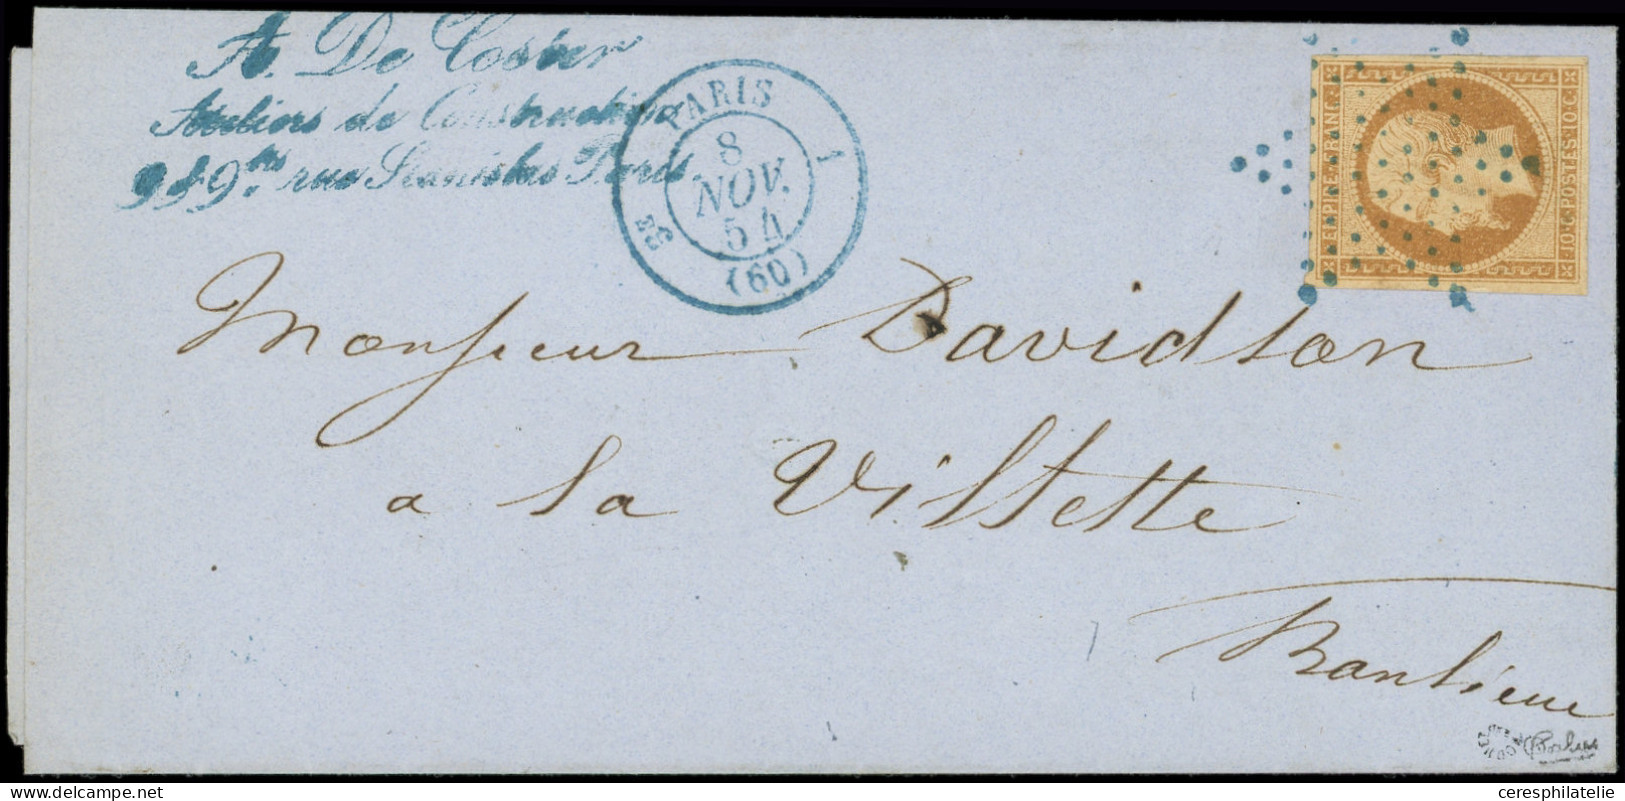 A. De Coster
Ateliers de Construction
9 & 9 bis rue Stanislas Paris.
PARIS
8
NOV.
54
(60)
1
EMPIRE·FRANC·
10·C·POSTES·10·C
Monsieur Davidson
a la Villette
Banlieue
ceresphilatelie